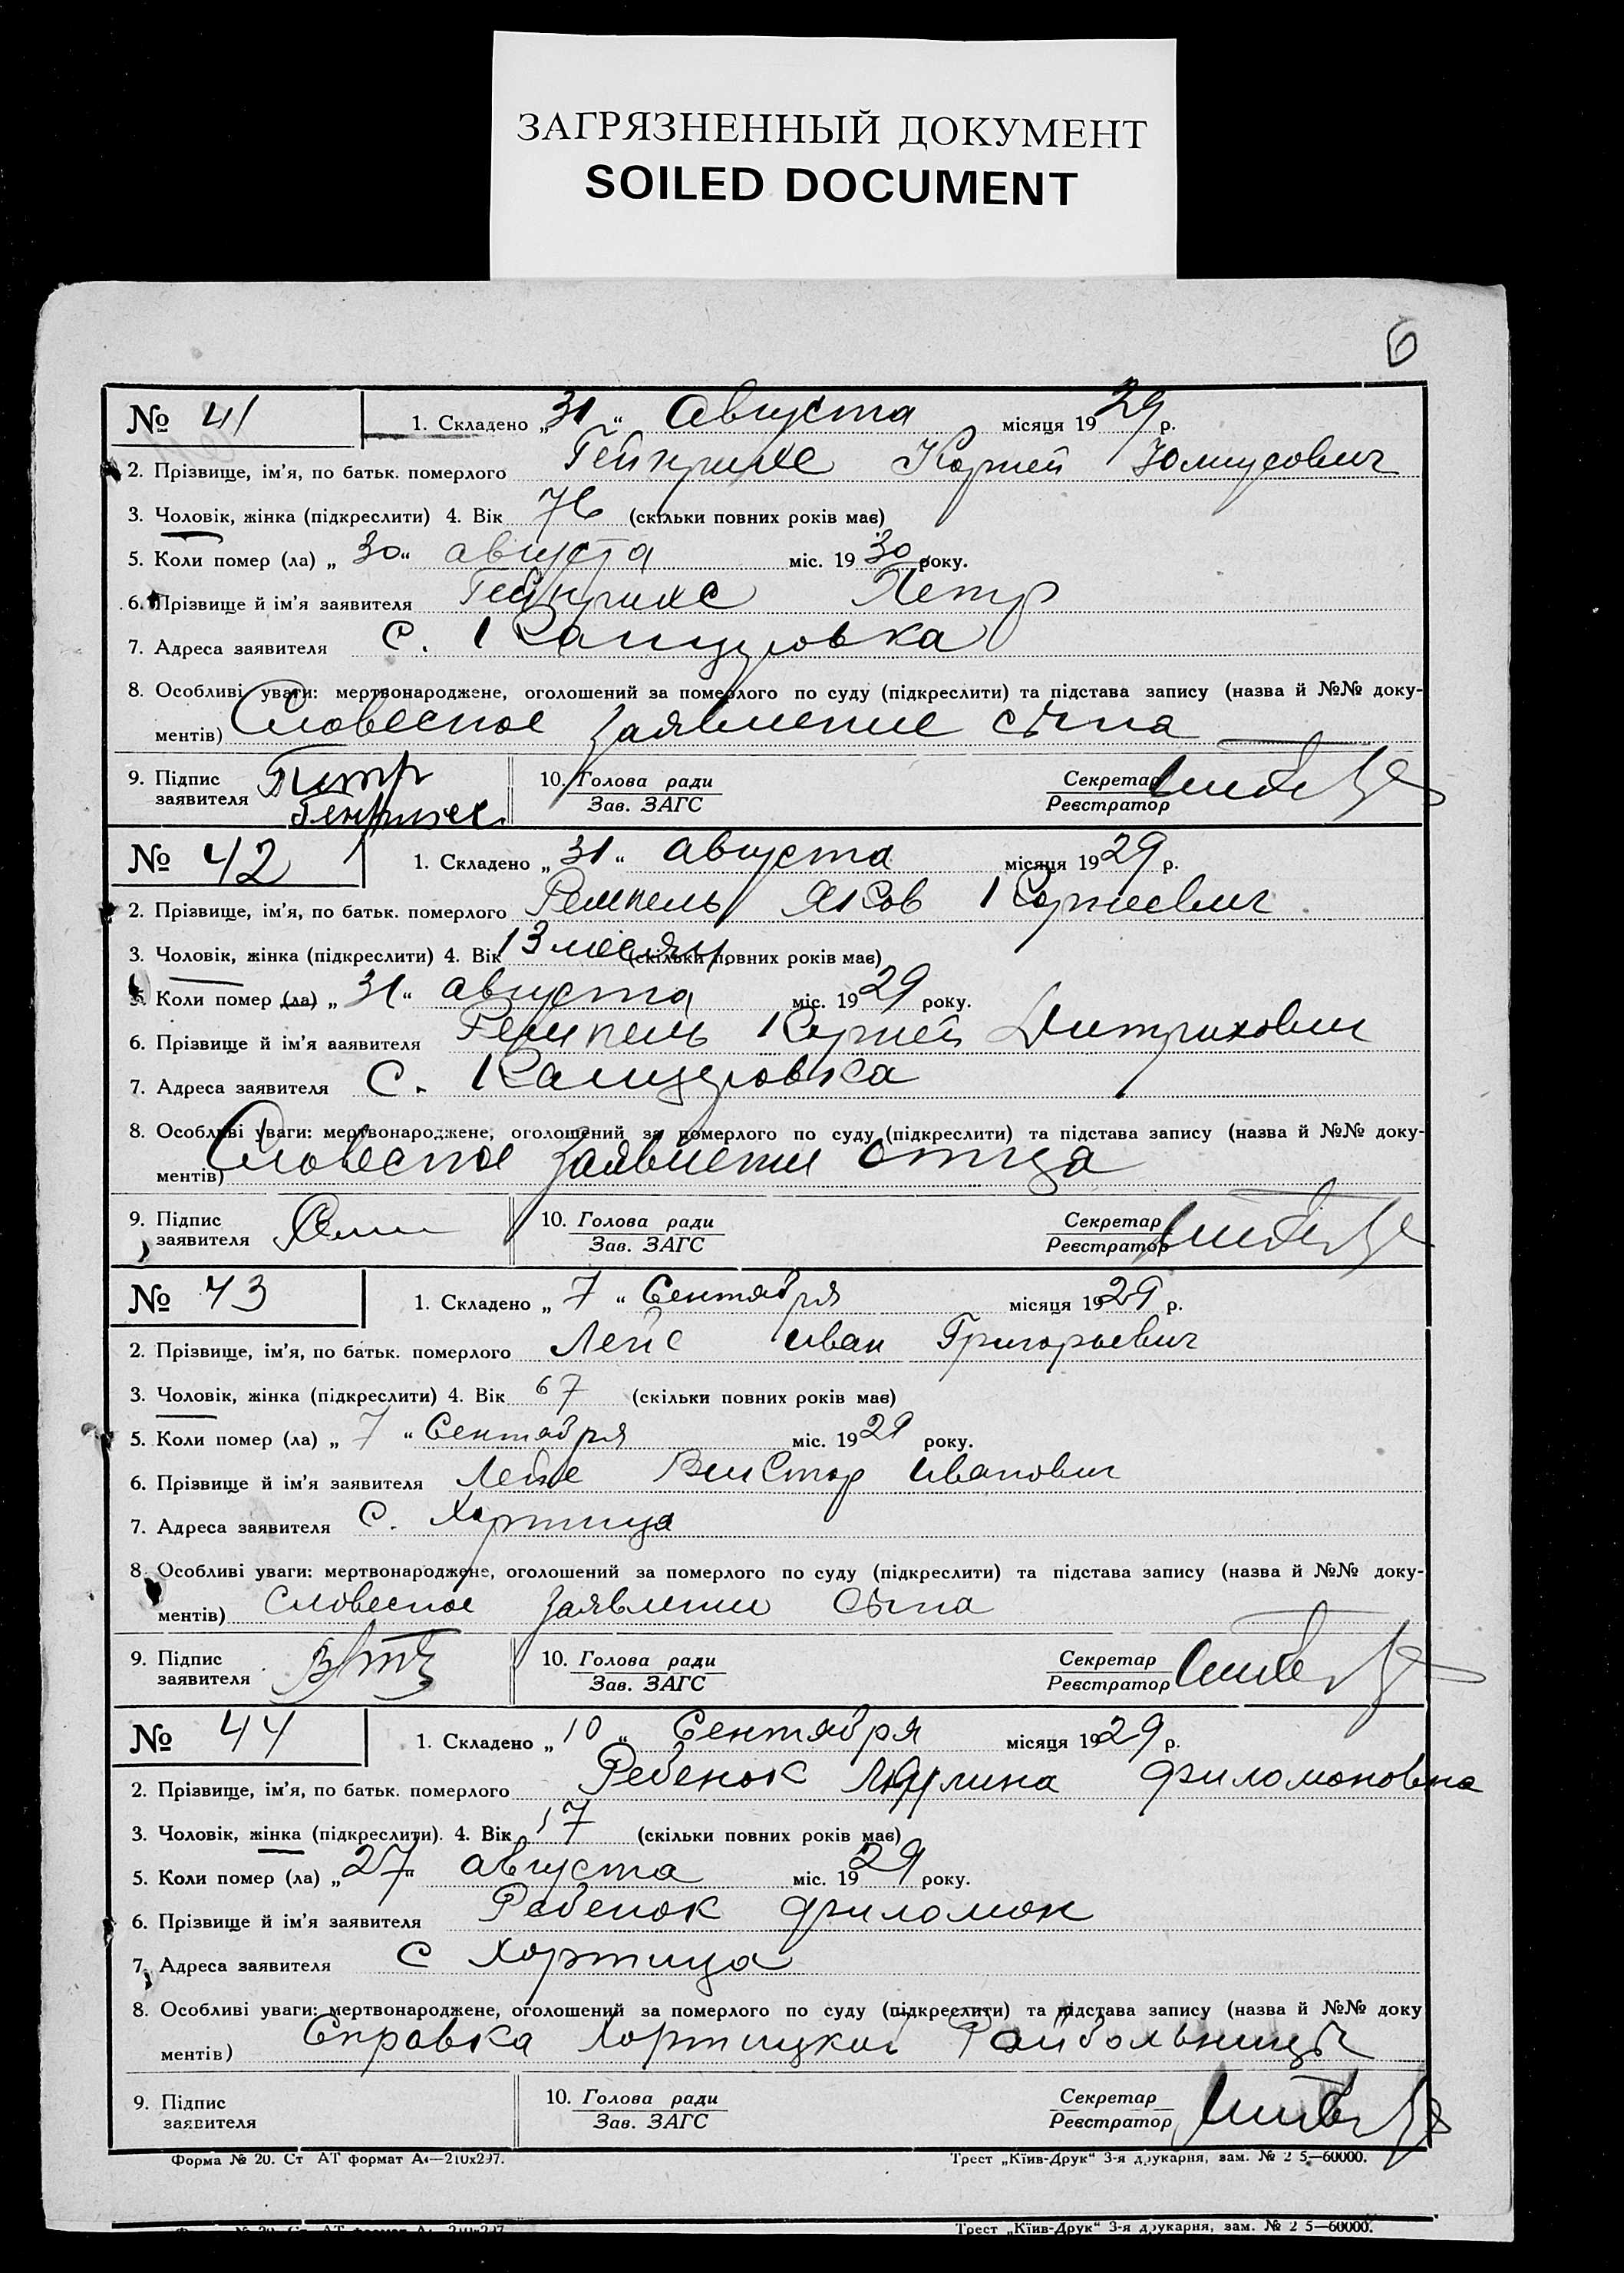 ЗАГРЯЗНЕННЫЙ ДОКУМЕНТ
SOILED DOCUMENT
6
№ 41 1. Складено „31“ Августа місяця 1929 р.
2. Прізвище, ім'я, по батьк. померлого Гейнрихс Корней Юлиусович
3. Чоловік, жінка (підкреслити) 4. Вік 76 (скільки повних років має)
5. Коли помер (ла) „30“ августа міс. 1930 року.
6. Прізвище й ім'я заявителя Гейнрихс Петр
7. Адреса заявителя С. Канцеровка
8. Особливі уваги: мертвонароджене, оголошений за померлого по суду (підкреслити) та підстава запису (назва й №№ доку-
ментів) Словесное заявление сына
9. Підпис заявителя Петр 10. Голова ради Секретар
Зав. ЗАГС Реєстратор
№ 42 1. Складено „31“ августа місяця 1929 р.
2. Прізвище, ім'я, по батьк. померлого Ремпель Яков Корнеевич
3. Чоловік, жінка (підкреслити) 4. Вік 13 месяц. (скільки повних років має)
5. Коли помер (ла) „31“ августа міс. 1929 року.
6. Прізвище й ім'я заявителя Ремпель Корней Дитрихович
7. Адреса заявителя С. Канцеровка
8. Особливі уваги: мертвонароджене, оголошений за померлого по суду (підкреслити) та підстава запису (назва й №№ доку-
ментів) Словесное заявление отца
9. Підпис заявителя 10. Голова ради Секретар
Зав. ЗАГС Реєстратор
№ 43 1. Складено „7“ Сентября місяця 1929 р.
2. Прізвище, ім'я, по батьк. померлого Лейс Иван Григорьевич
3. Чоловік, жінка (підкреслити) 4. Вік 67 (скільки повних років має)
5. Коли помер (ла) „7“ Сентября міс. 1929 року.
6. Прізвище й ім'я заявителя Виктор Иванович
7. Адреса заявителя С. Хортица
8. Особливі уваги: мертвонароджене, оголошений за померлого по суду (підкреслити) та підстава запису (назва й №№ доку-
ментів) Словесное заявление сына
9. Підпис заявителя 10. Голова ради Секретар
Зав. ЗАГС Реєстратор
№ 44 1. Складено „10“ Сентября місяця 1929 р.
2. Прізвище, ім'я, по батьк. померлого Ребенок Филомоновна
3. Чоловік, жінка (підкреслити). 4. Вік 17 (скільки повних років має)
5. Коли помер (ла) „27“ августа міс. 1929 року.
6. Прізвище й ім'я заявителя Ребенок Филомон
7. Адреса заявителя С Хортица
8. Особливі уваги: мертвонароджене, оголошений за померлого по суду (підкреслити) та підстава запису (назва й №№ доку
ментів) Справка Хортицкой Райбольницы
9. Підпис заявителя 10. Голова ради Секретар
Зав. ЗАГС Реєстратор
Форма № 20. Ст АТ формат А4—210х297. Трест „Київ-Друк“ 3-я друкарня, зам. № 2 5—60000.
Трест „Київ-Друк“ 3-я друкарня, зам. № 2 5—60000.